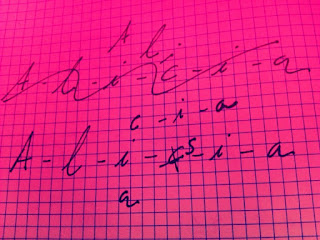 A l
A - l - i - c - i - a
c - i - a
A - l - i - s - i - a
a